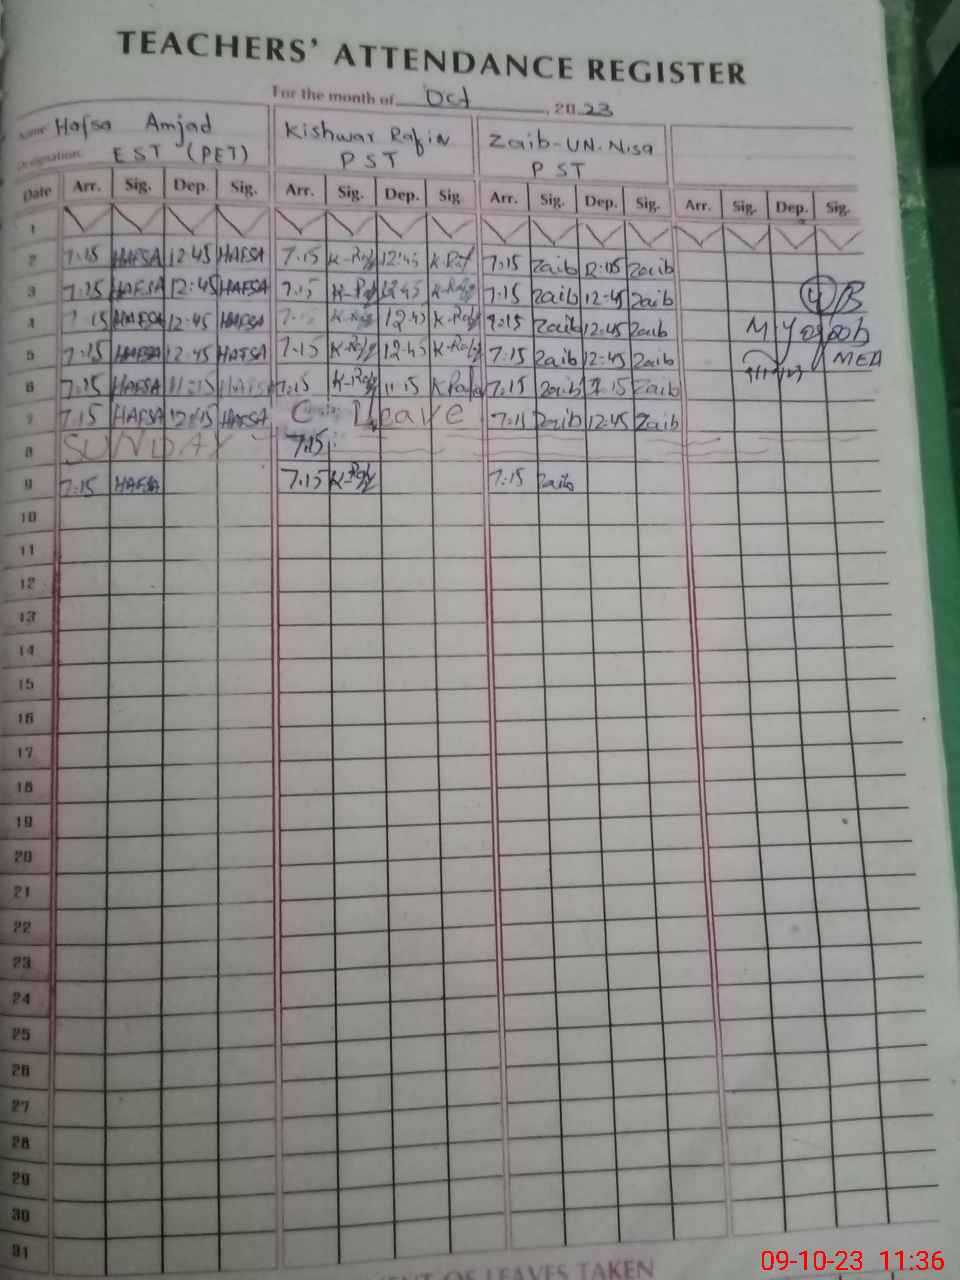 TEACHERS' ATTENDANCE REGISTER
For the month of Oct, 2023
Name: Hafsa Amjad Kishwar Rafiq Zaib-UN-Nisa
Designation: EST (PET) PST PST
Date Arr. Sig. Dep. Sig. Arr. Sig. Dep. Sig. Arr. Sig. Dep. Sig. Arr. Sig. Dep. Sig.
1
2 7:15 HAFSA 12:45 HAFSA 7.15 K-Raf 12:45 K-Raf 7:15 Zaib Zaib
3 7:15 HAFSA 12:45 HAFSA 7.15 12:45 7:15 Zaib 12:45 Zaib
4 15 HAFSA 12:45 HAFSA 12:45 7:15 Zaib 12:45 Zaib M Yaqoob
5 7:15 HAFSA 12:45 HAFSA 7.15 12:45 7:15 Zaib 12:45 Zaib MEA
6 7:15 HAFSA 11:15 HAFSA 7:15 11:15 7:15 Zaib Zaib
7 7:15 HAFSA HAFSA Leave Zaib 12:45 Zaib
8 SUNDAY 7.15
9 7:15 HAFSA 7.15 7:15 Zaib
10
11
12
13
14
15
16
17
18
19
20
21
22
23
24
25
26
27
28
29
30
31
OF LEAVES TAKEN
09-10-23 11:36